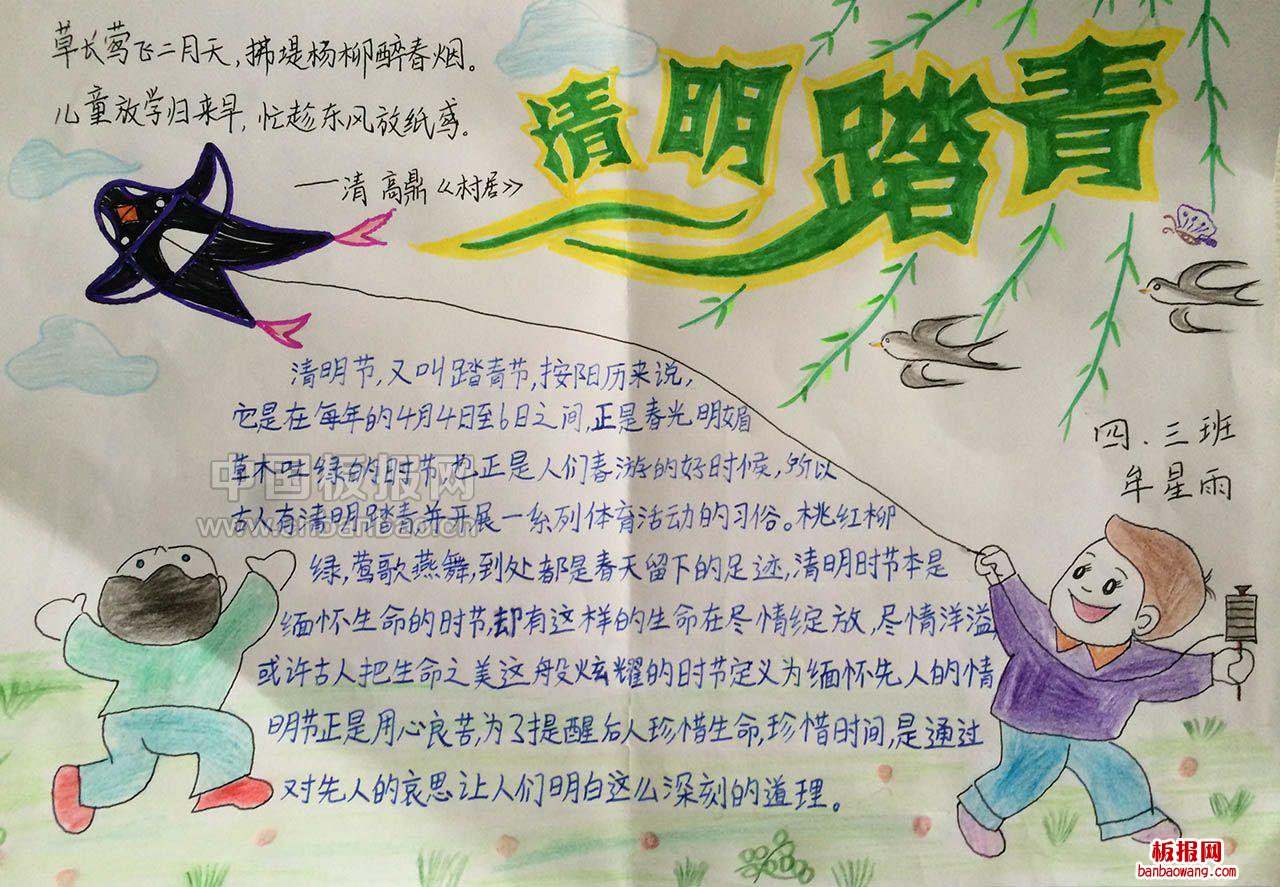 草长莺飞二月天，拂堤杨柳醉春烟。
儿童放学归来早，忙趁东风放纸鸢。
——清 高鼎《村居》
清明踏青
清明节，又叫踏青节，按阳历来说，
它是在每年的4月4日至6日之间，正是春光明媚
草木吐绿的时节，也正是人们春游的好时候，所以
古人有清明踏青并开展一系列体育活动的习俗。桃红柳
绿，莺歌燕舞，到处都是春天留下的足迹，清明时节本是
缅怀生命的时节，却有这样的生命在尽情绽放，尽情洋溢
或许古人把生命之美这般炫耀的时节定义为缅怀先人的情
明节正是用心良苦，为了提醒后人珍惜生命，珍惜时间，是通过
对先人的哀思让人们明白这么深刻的道理。
四、三班
牟星雨
中国板报网
www.cnbanbao.cn
板报网
banbaowang.com